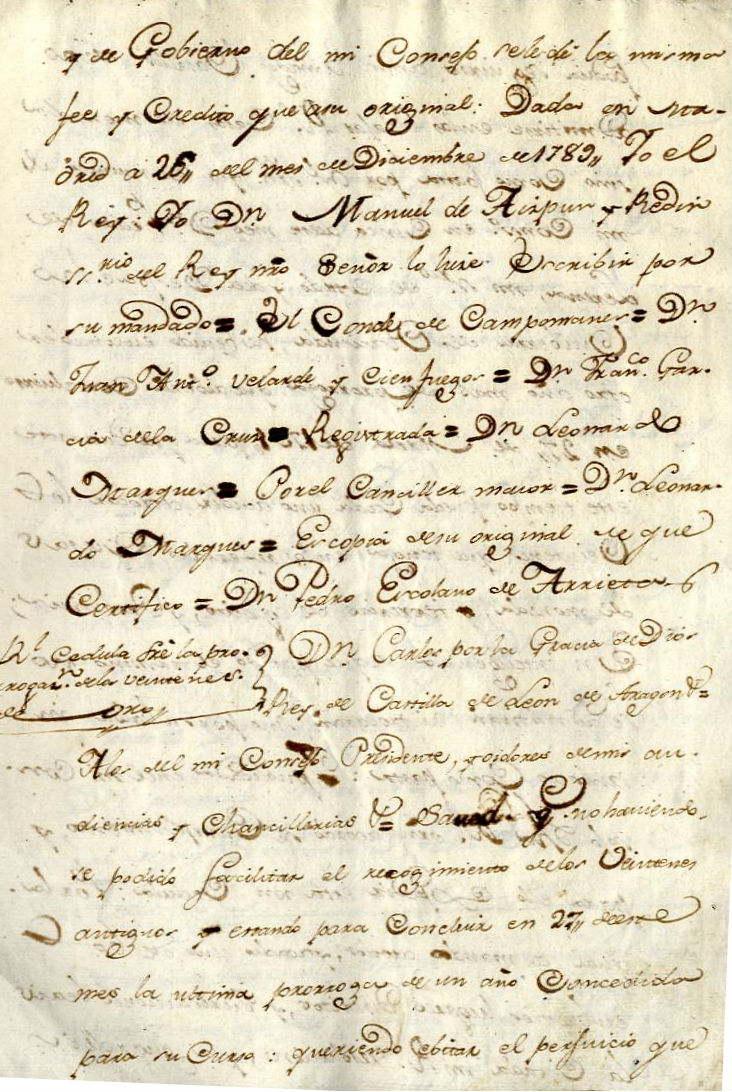 y de Gobierno del mi Consejo sele dé la misma
fee y Credito que asu original: Dada en Ma-
drid a 26,, del mes de Diciembre de 1789,, Yo el
Rey: Yo Dn. Manuel de Aizpun y Redin
ss.rio del Rey nro Señor lo hize Escribir por
su mandado = El Conde de Campomanes = Dn.
Juan Ant.o Velarde y Cienfuegos = Dn. Fran.co Gar-
cia dela Cruz = Registrada = Dn. Leonardo
Marques = Por el Canciller maior = Dn. Leonar-
do Marques = Es copia desu original de que
Certifico = Dn. Pedro Escolano de Arrieta
Rl. Cedula sre la pro-
rrogazn. dela veintenes.
de oro
Dn. Carlos por la Gracia de Dios
Rey de Castilla de Leon de Aragon &=
Alos del mi Consejo Presidente, y oidores demis au-
diencias y Chancillerias &= Saved Q. no haviendo-
se podido facilitar el recogimiento delos Veintenes
antiguos y estando para Concluir en 27,, deeste
mes la ultima prorroga de un año Concedida
para su Curso: queriendo ebitar el perjuicio que